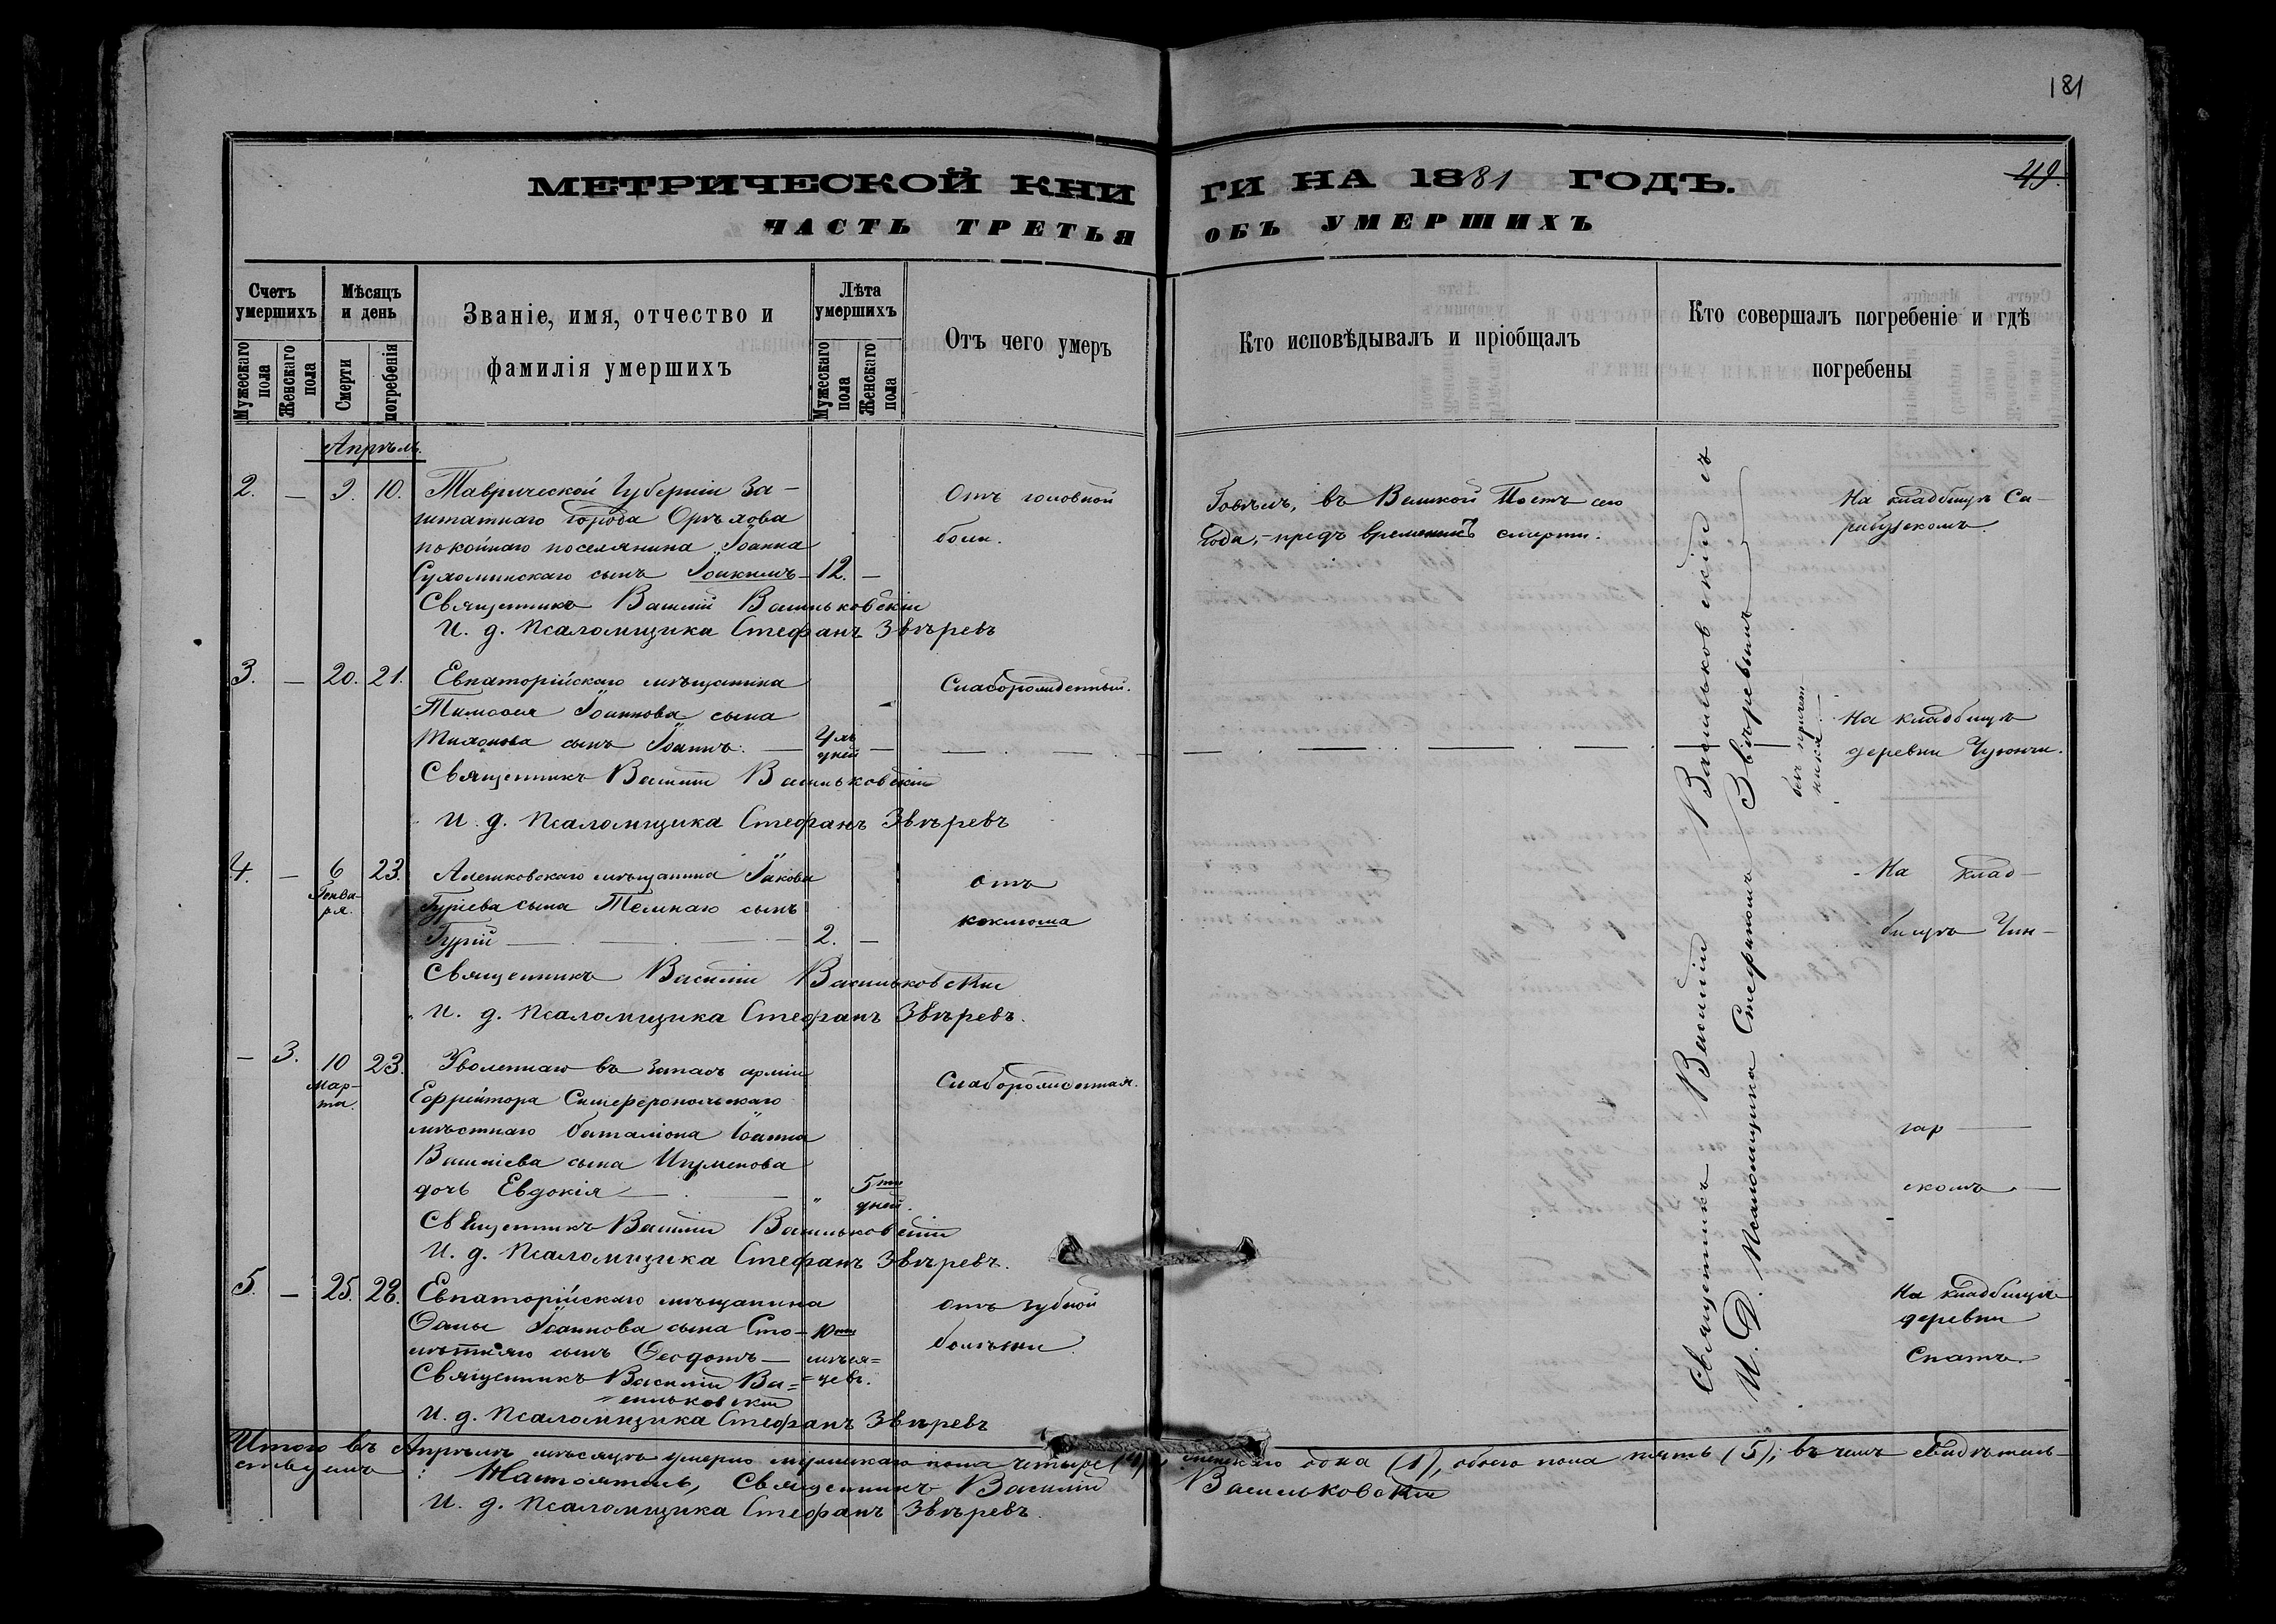 181
49.
МЕТРИЧЕСКОЙ КНИ
ГИ НА 1881 ГОДЪ.
ЧАСТЬ ТРЕТЬЯ
ОБЪ УМЕРШИХЪ
Счетъ умершихъ
Мужескаго пола
Женскаго пола
Мѣсяцъ и день
Смерти
погребенія
Званіе, имя, отчество и
фамилія умершихъ
Лѣта умершихъ
Мужескаго пола
Женскаго пола
Отъ чего умеръ
Кто исповѣдывалъ и пріобщалъ
Кто совершалъ погребеніе и гдѣ
погребены
Апрѣль.
2. — 9. 10. Таврической Губерніи За-
штатнаго города Орѣхова
покойнаго поселянина Іоанна
Сухоминскаго сынъ Іоакимъ — 12. —
Отъ головной
боли.
Говѣлъ, въ Великой Постъ сего
года, - предъ временемъ смерти.
На кладбищѣ Са-
рабузскомъ.
Священникъ Василій Васильковскій
И. д. Псаломщика Стефанъ Звѣревъ
3. — 20. 21. Евпаторійскаго мѣщанина
Тимоѳея Іоаннова сына
Тихонова сынъ Іоаннъ. — дней —
Слаборожденный.
На кладбищѣ
деревни
Священникъ Василій Васильковскій
И. д. Псаломщика Стефанъ Звѣревъ
4. — 6 Генва-
ря. 23. Алешковскаго мѣщанина Іакова
Гуріева сына Темнаго сынъ
Гурій — 2. —
отъ
коклюша
На клад-
бищѣ Чон-
Священникъ Василій Васильковскій
И. д. Псаломщика Стефанъ Звѣревъ.
— 3. 10 Мар-
та. 23. Уволеннаго въ запасъ арміи
Ефрейтора Симферопольскаго
мѣстнаго баталіона Іоанна
Василіева сына
дочь Евдокія — " 5ти
дней.
Слаборожденная.
гар —
скомъ —
Священникъ Василій Васильковскій
И. д. Псаломщика Стефанъ Звѣревъ.
5. — 25. 28. Евпаторійскаго мѣщанина
Ѳомы Іоаннова сына Сто-
лѣтняго сынъ Ѳеодотъ — 10ти
мѣся=
=цевъ.
отъ зубной
болѣзни
На кладбищѣ
деревни
Спатъ.
Священникъ Василій Ва=
=сильковскій
И. д. Псаломщика Стефанъ Звѣревъ
Священникъ Василій Васильковскій съ
И. Д. Псаломщика Стефаномъ Звѣревымъ
Итого въ Апрѣлѣ мѣсяцѣ умерло мужескаго пола четыре (4), женскаго одна (1), обоего пола пять (5); въ чемъ свидѣтель-
ствуемъ: Настоятель, Священникъ Василій Васильковскій
И. д. Псаломщика Стефанъ Звѣревъ.